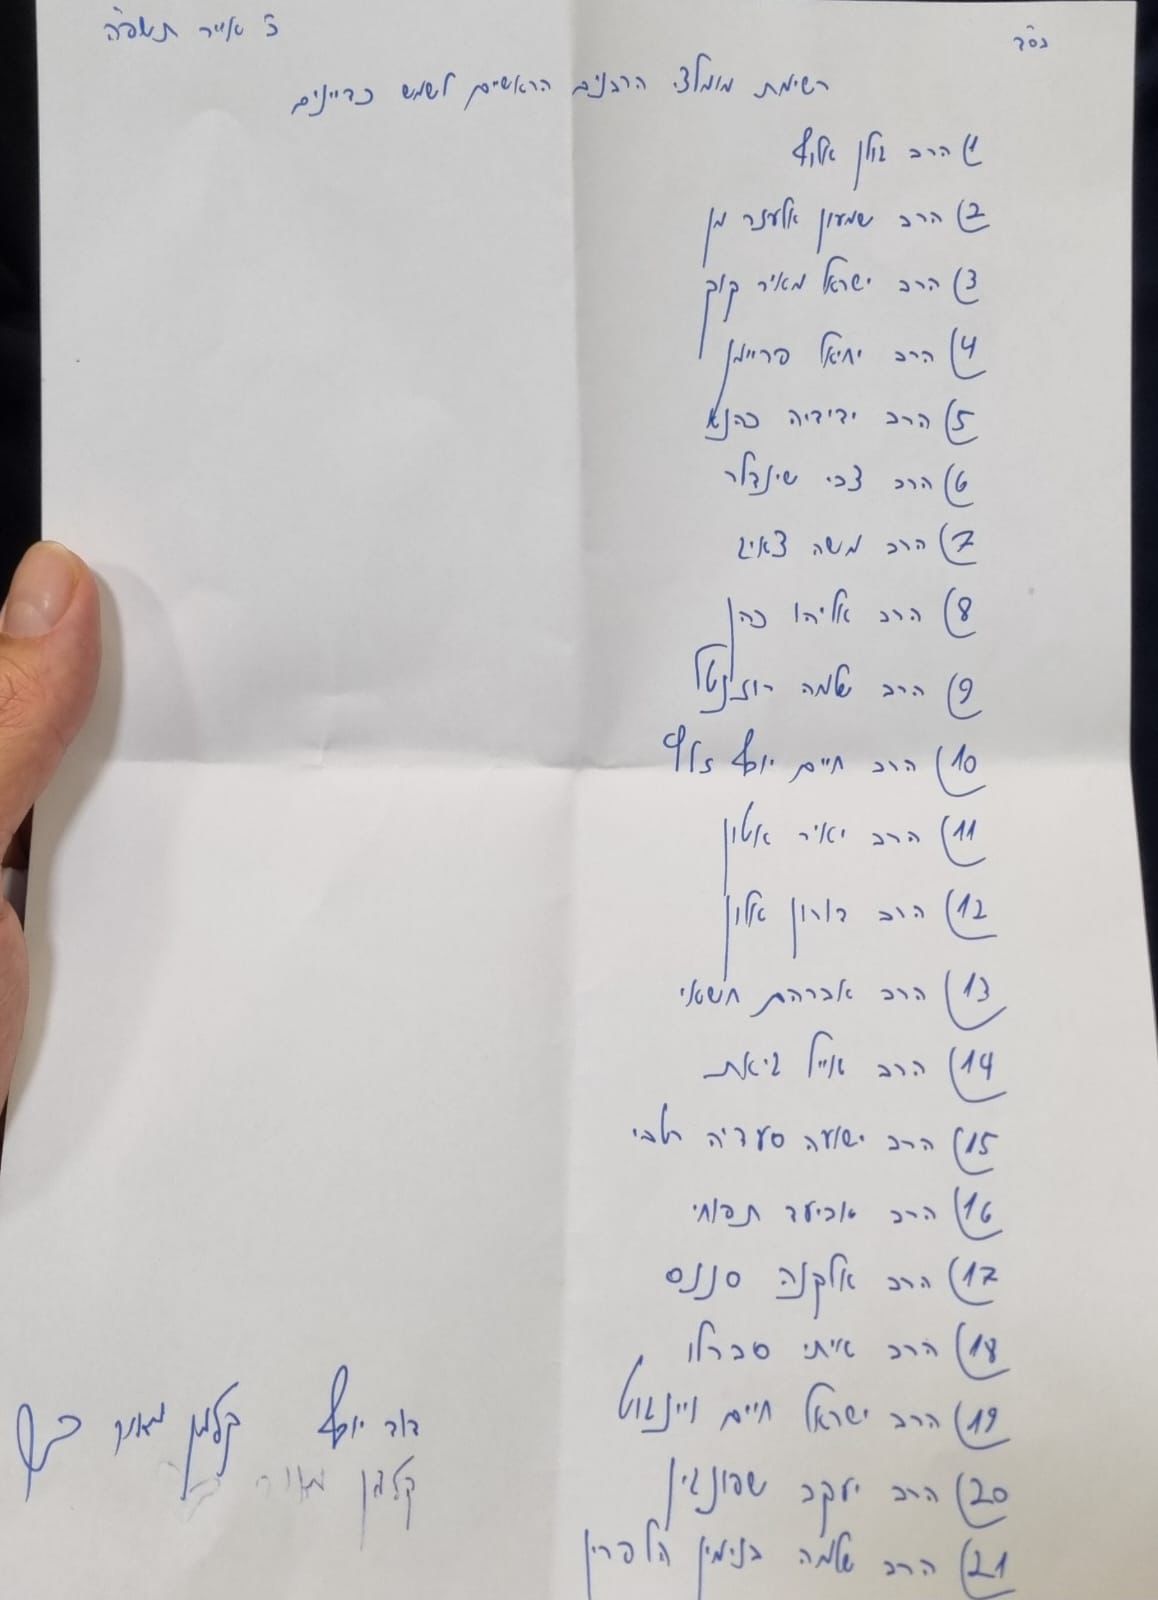 בס"ד
ז' אייר תשפ"ה
רשימת מומלצי הרבנים הראשיים לשמש כדיינים
1) הרב גולן אלוף
2) הרב שמעון אלעזר מן
3) הרב ישראל מאיר קוק
4) הרב יחיאל פריימן
5) הרב ידידיה כהנא
6) הרב צבי שינדלר
7) הרב משה צאיג
8) הרב אליהו כהן
9) הרב שלמה רוזנטל
10) הרב חיים יוסף זלוף
11) הרב יאיר אטון
12) הרב דורון אלון
13) הרב אברהם חשאי
14) הרב אייל גיאת
15) הרב ישועה סעדיה רטבי
16) הרב אביעד תפוחי
17) הרב אלקנה סננס
18) הרב איתי סברלו
19) הרב ישראל חיים ויינגוט
20) הרב יעקב שפונגין
21) הרב שלמה בנימין הלפרין
דוד יוסף קלמן מאיר בר
קלמן מאיר